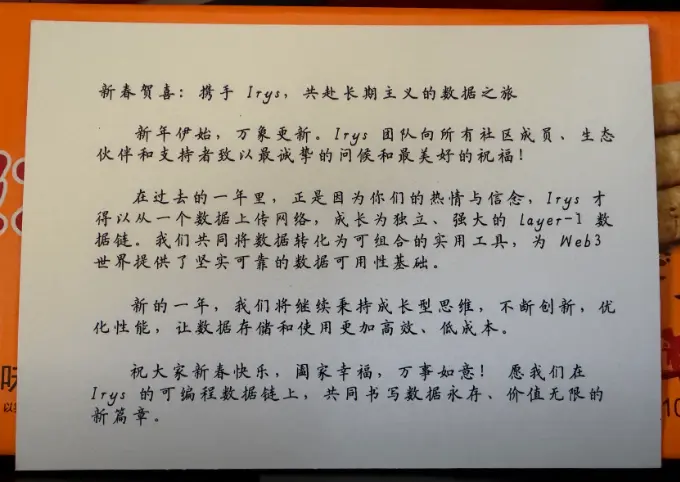 新春贺喜：携手 Irys，共赴长期主义的数据之旅
新年伊始，万象更新。Irys 团队向所有社区成员、生态
伙伴和支持者致以最诚挚的问候和最美好的祝福！
在过去的一年里，正是因为你们的热情与信念，Irys 才
得以从一个数据上传网络，成长为独立、强大的 layer-1 数
据链。我们共同将数据转化为可组合的实用工具，为 Web3
世界提供了坚实可靠的数据可用性基础。
新的一年，我们将继续秉持成长型思维，不断创新，优
化性能，让数据存储和使用更加高效、低成本。
祝大家新春快乐，阖家幸福，万事如意！ 愿我们在
Irys 的可编程数据链上，共同书写数据永存、价值无限的
新篇章。
味
10